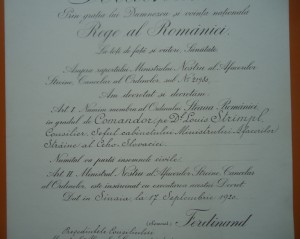 Prin grația lui Dumnezeu și voința națională
Rege al României,
La toți de față și viitori, Sănătate.
Asupra raportului Ministrului Nostru al Afacerilor
Străine, Cancelar al Ordinelor, sub Nr.
Am decretat și decretăm:
Art. I. Numim membru al Ordinului Steaua României
în gradul de Comandor, pe Dr. Louis Strimpl,
Consilier, Șeful cabinetului Ministrului Afacerilor
Străine al Ceho-Slovaciei
Numitul va purta insemnele civile.
Art. II. Ministrul Nostru al Afacerilor Străine, Cancelar
al Ordinelor, este însărcinat cu executarea acestui Decret.
Dat în Sinaia, la 17 Septembrie 1920.
Ferdinand
Președintele Consiliului